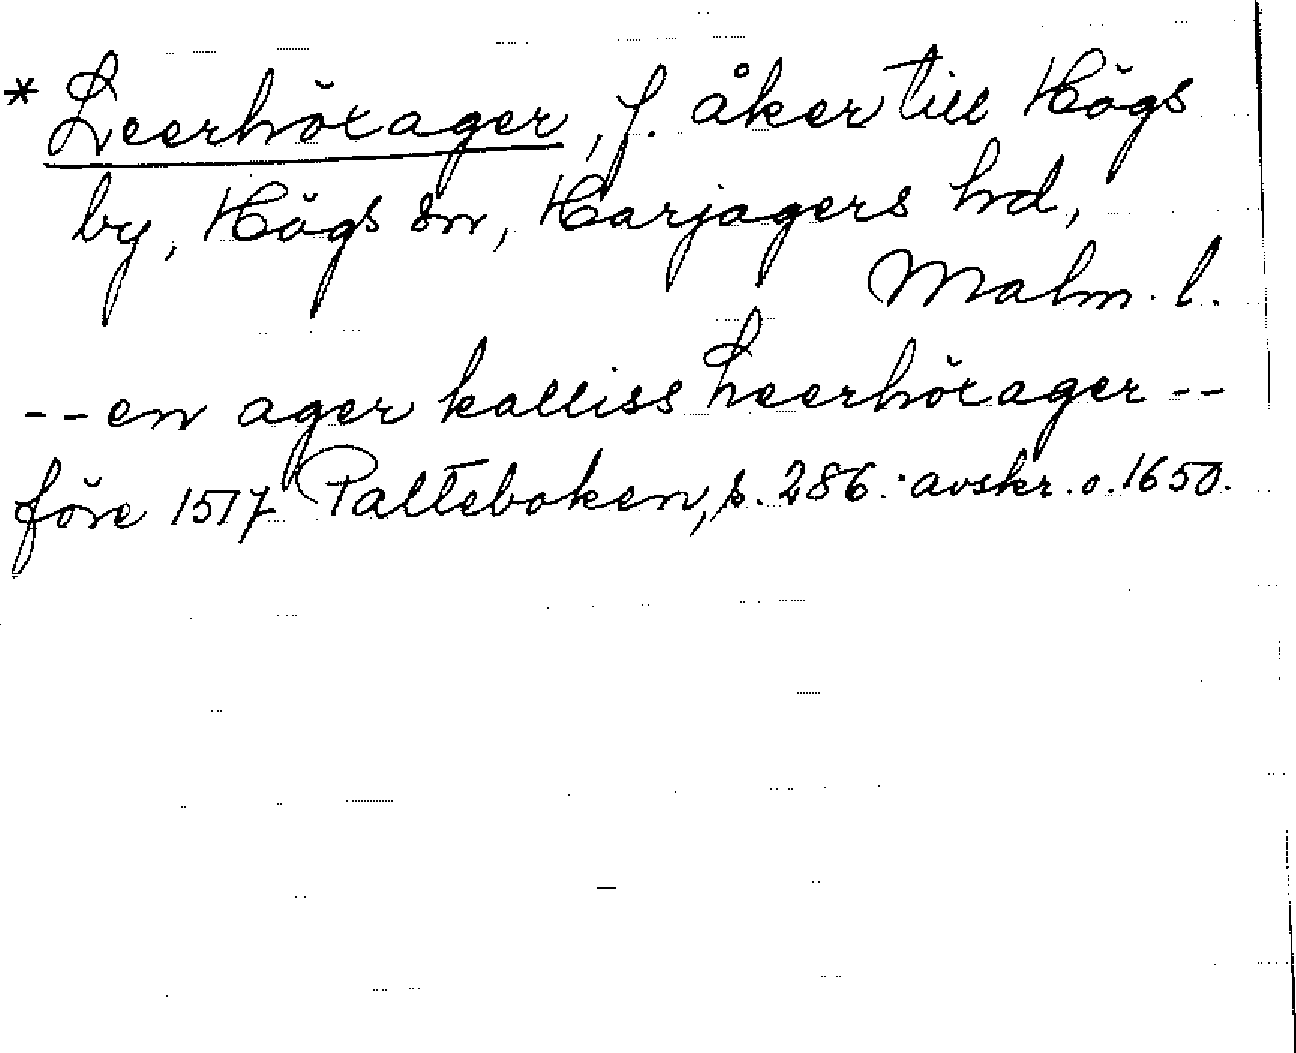 * Leerhörager, f. åker till Högs
by, Högs sn, Harjagers hd,
Malm. l.
-- en ager kalliss Leerhörager --
före 1517 Palteboken, s. 286. avskr. o. 1650.